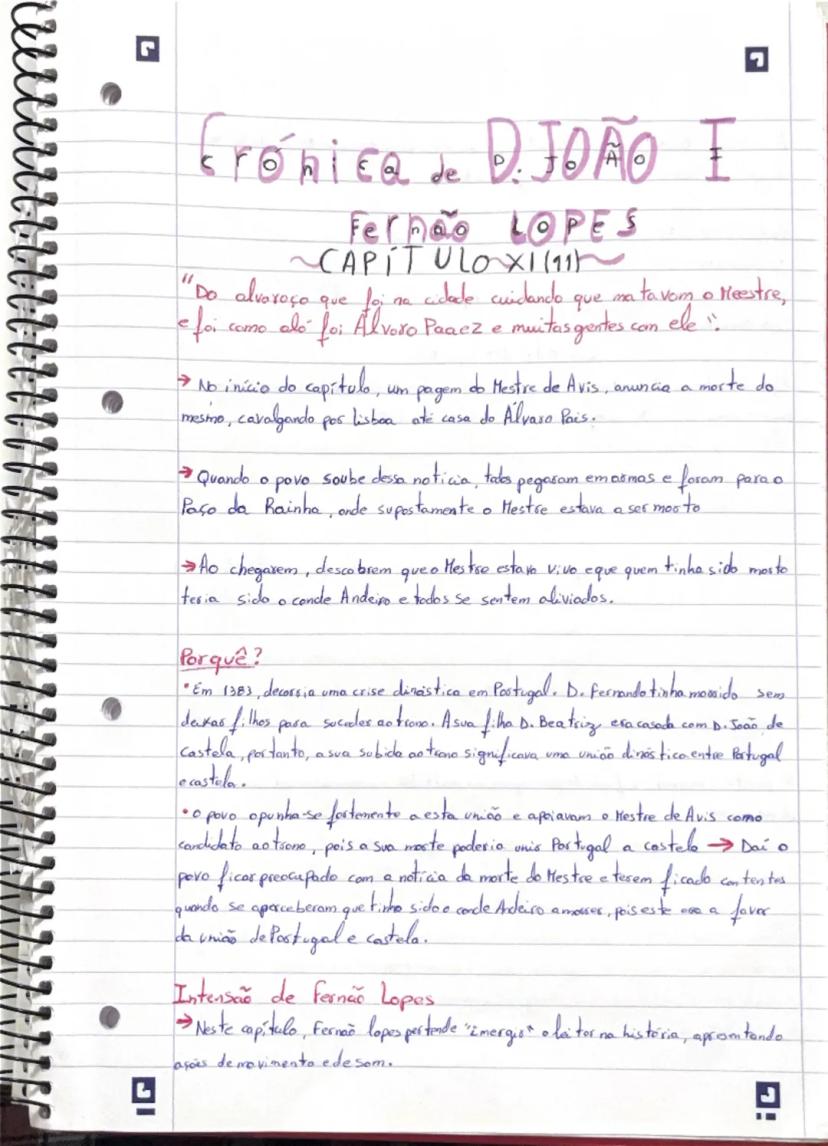 Crónica de D. JOÃO I
Fernão LOPES
~CAPÍTULO XI (11)~
"Do alvoroço que foi na cidade cuidando que matavom o Meestre,
e foi como aló foi Álvoro Paaez e muitas gentes con ele".
→ No início do capítulo, um pagem do Mestre de Avis, anuncia a morte do
mesmo, cavalgando por Lisboa até casa do Álvaro Pais.
→ Quando o povo soube dessa notícia, todos pegaram em armas e foram para o
Paço da Rainha, onde supostamente o Mestre estava a ser morto
→ Ao chegarem, descobrem que o Mestre estava vivo e que quem tinha sido morto
teria sido o conde Andeiro e todos se sentem aliviados.
Porquê?
• Em 1383, decorria uma crise dinástica em Portugal. D. Fernando tinha morrido sem
deixar filhos para suceder ao trono. A sua filha D. Beatriz era casada com D. João de
Castela, portanto, a sua subida ao trono significava uma união dinástica entre Portugal
e castela.
• O povo opunha-se fortemente a esta união e apoiavam o Mestre de Avis como
candidato ao trono, pois a sua morte poderia unir Portugal a castela → Daí o
povo ficar preocupado com a notícia da morte do Mestre e terem ficado contentes
quando se aperceberam que tinha sido o conde Andeiro a morrer, pois este era a favor
da união de Portugal e castela.
Intensão de Fernão Lopes
→ Neste capítulo, Fernão lopes pertende "imergir" o leitor na história, apromtando
ações de movimento e de som.